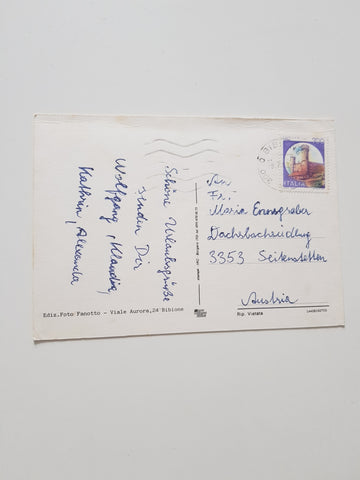 Schöne Urlaubsgrüße
senden Dir
Wolfgang, Klaudia,
Kathrin, Alexander
ITALIA
Fr.
Maria Ennsgraber
Dachsbachsiedlung
3353 Seitenstetten
Austria
Ediz.Foto Fanotto - Viale Aurora,24 Bibione
Rip. Vietata